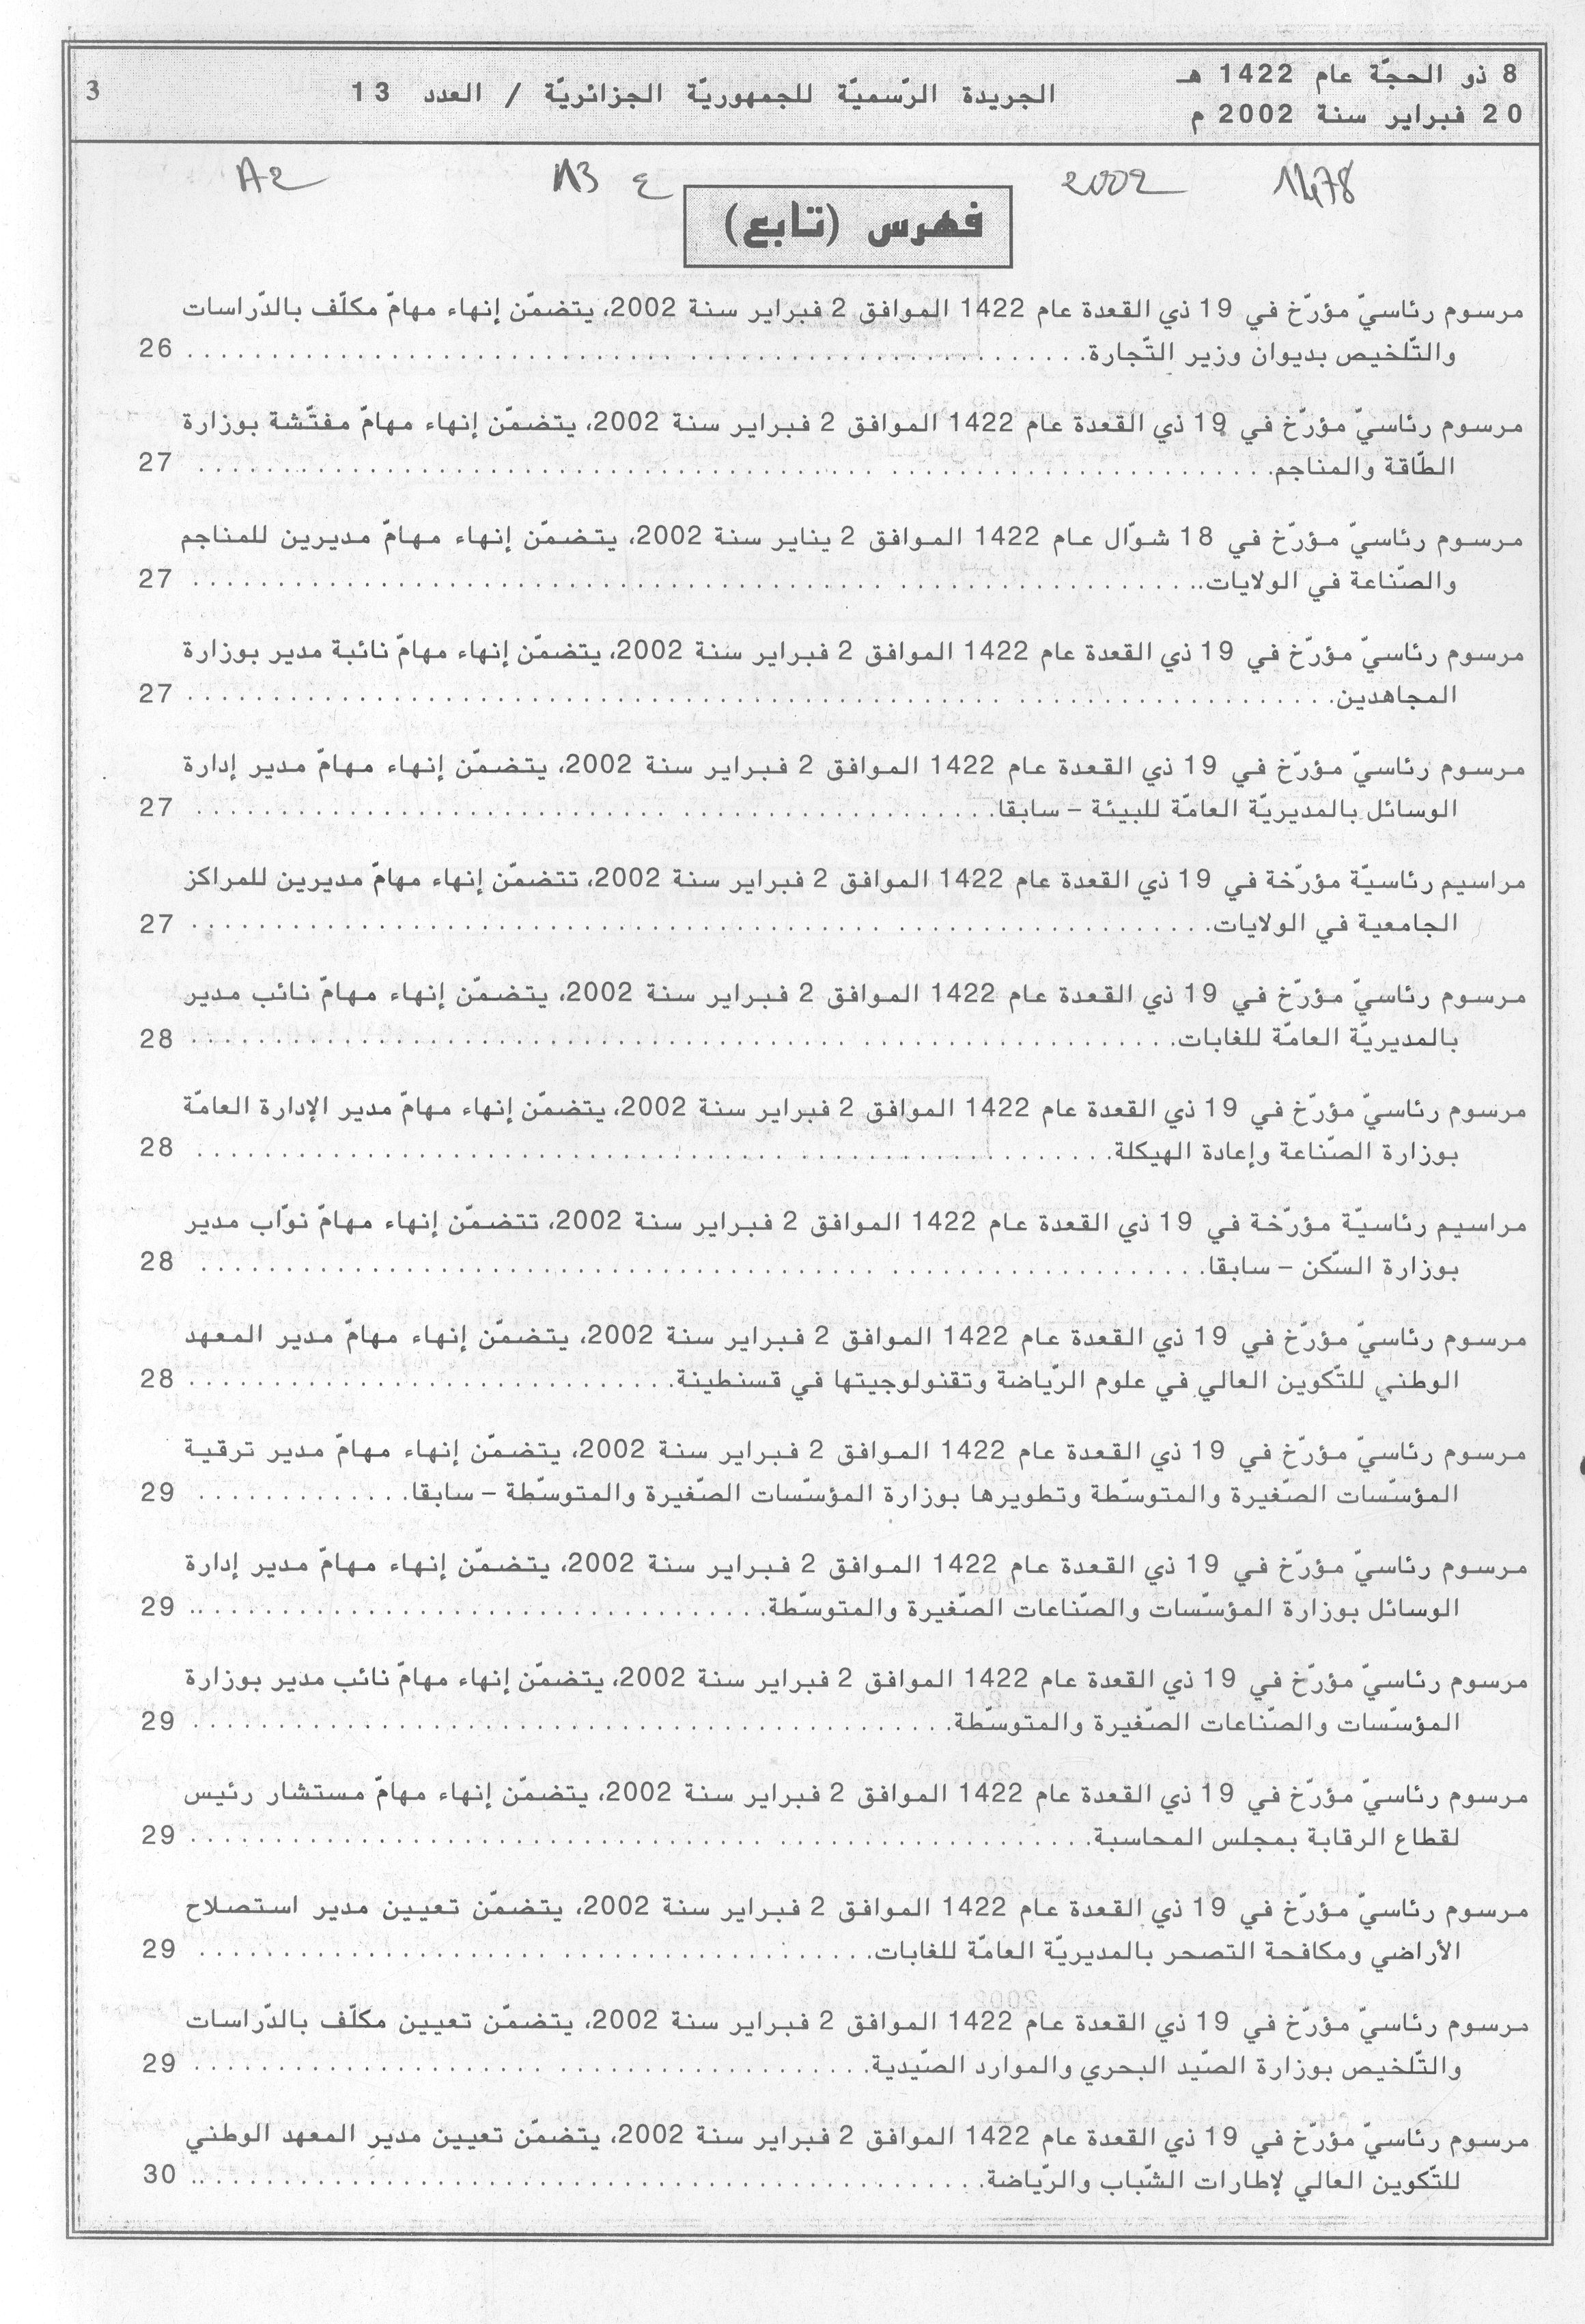 8 ذو الحجّة عام 1422 هـ
20 فبراير سنة 2002 م
الجريدة الرّسميّة للجمهوريّة الجزائريّة / العدد 13
3
A2 N3 ع 2002 1478
فهرس (تابع)
مرسوم رئاسيّ مؤرّخ في 19 ذي القعدة عام 1422 الموافق 2 فبراير سنة 2002، يتضمّن إنهاء مهامّ مكلّف بالدّراسات
والتّلخيص بديوان وزير التّجارة. . . . . . . . . . . . . . . . . . . . 26
مرسوم رئاسيّ مؤرّخ في 19 ذي القعدة عام 1422 الموافق 2 فبراير سنة 2002، يتضمّن إنهاء مهامّ مفتّشة بوزارة
الطّاقة والمناجم. . . . . . . . . . . . . . . . . . . . 27
مرسوم رئاسيّ مؤرّخ في 18 شوّال عام 1422 الموافق 2 يناير سنة 2002، يتضمّن إنهاء مهامّ مديرين للمناجم
والصّناعة في الولايات. . . . . . . . . . . . . . . . . . . . 27
مرسوم رئاسيّ مؤرّخ في 19 ذي القعدة عام 1422 الموافق 2 فبراير سنة 2002، يتضمّن إنهاء مهامّ نائبة مدير بوزارة
المجاهدين. . . . . . . . . . . . . . . . . . . . 27
مرسوم رئاسيّ مؤرّخ في 19 ذي القعدة عام 1422 الموافق 2 فبراير سنة 2002، يتضمّن إنهاء مهامّ مدير إدارة
الوسائل بالمديريّة العامّة للبيئة – سابقا. . . . . . . . . . . . . . . . . . . . 27
مراسيم رئاسيّة مؤرّخة في 19 ذي القعدة عام 1422 الموافق 2 فبراير سنة 2002، تتضمّن إنهاء مهامّ مديرين للمراكز
الجامعية في الولايات. . . . . . . . . . . . . . . . . . . . 27
مرسوم رئاسيّ مؤرّخ في 19 ذي القعدة عام 1422 الموافق 2 فبراير سنة 2002، يتضمّن إنهاء مهامّ نائب مدير
بالمديريّة العامّة للغابات. . . . . . . . . . . . . . . . . . . . 28
مرسوم رئاسيّ مؤرّخ في 19 ذي القعدة عام 1422 الموافق 2 فبراير سنة 2002، يتضمّن إنهاء مهامّ مدير الإدارة العامّة
بوزارة الصّناعة وإعادة الهيكلة. . . . . . . . . . . . . . . . . . . . 28
مراسيم رئاسيّة مؤرّخة في 19 ذي القعدة عام 1422 الموافق 2 فبراير سنة 2002، تتضمّن إنهاء مهامّ نوّاب مدير
بوزارة السّكن – سابقا. . . . . . . . . . . . . . . . . . . . 28
مرسوم رئاسيّ مؤرّخ في 19 ذي القعدة عام 1422 الموافق 2 فبراير سنة 2002، يتضمّن إنهاء مهامّ مدير المعهد
الوطني للتّكوين العالي في علوم الرّياضة وتقنولوجيتها في قسنطينة. . . . . . . . . . . . . . . . . . . . 28
مرسوم رئاسيّ مؤرّخ في 19 ذي القعدة عام 1422 الموافق 2 فبراير سنة 2002، يتضمّن إنهاء مهامّ مدير ترقية
المؤسّسات الصّغيرة والمتوسّطة وتطويرها بوزارة المؤسّسات الصّغيرة والمتوسّطة – سابقا. . . . . . . . . . . . . 29
مرسوم رئاسيّ مؤرّخ في 19 ذي القعدة عام 1422 الموافق 2 فبراير سنة 2002، يتضمّن إنهاء مهامّ مدير إدارة
الوسائل بوزارة المؤسّسات والصّناعات الصّغيرة والمتوسّطة. . . . . . . . . . . . . . . . . . . . 29
مرسوم رئاسيّ مؤرّخ في 19 ذي القعدة عام 1422 الموافق 2 فبراير سنة 2002، يتضمّن إنهاء مهامّ نائب مدير بوزارة
المؤسّسات والصّناعات الصّغيرة والمتوسّطة. . . . . . . . . . . . . . . . . . . . 29
مرسوم رئاسيّ مؤرّخ في 19 ذي القعدة عام 1422 الموافق 2 فبراير سنة 2002، يتضمّن إنهاء مهامّ مستشار رئيس
لقطاع الرقابة بمجلس المحاسبة. . . . . . . . . . . . . . . . . . . . 29
مرسوم رئاسيّ مؤرّخ في 19 ذي القعدة عام 1422 الموافق 2 فبراير سنة 2002، يتضمّن تعيين مدير استصلاح
الأراضي ومكافحة التصحر بالمديريّة العامّة للغابات. . . . . . . . . . . . . . . . . . . . 29
مرسوم رئاسيّ مؤرّخ في 19 ذي القعدة عام 1422 الموافق 2 فبراير سنة 2002، يتضمّن تعيين مكلّف بالدّراسات
والتّلخيص بوزارة الصّيد البحري والموارد الصّيدية. . . . . . . . . . . . . . . . . . . . 29
مرسوم رئاسيّ مؤرّخ في 19 ذي القعدة عام 1422 الموافق 2 فبراير سنة 2002، يتضمّن تعيين مدير المعهد الوطني
للتّكوين العالي لإطارات الشّباب والرّياضة. . . . . . . . . . . . . . . . . . . . 30